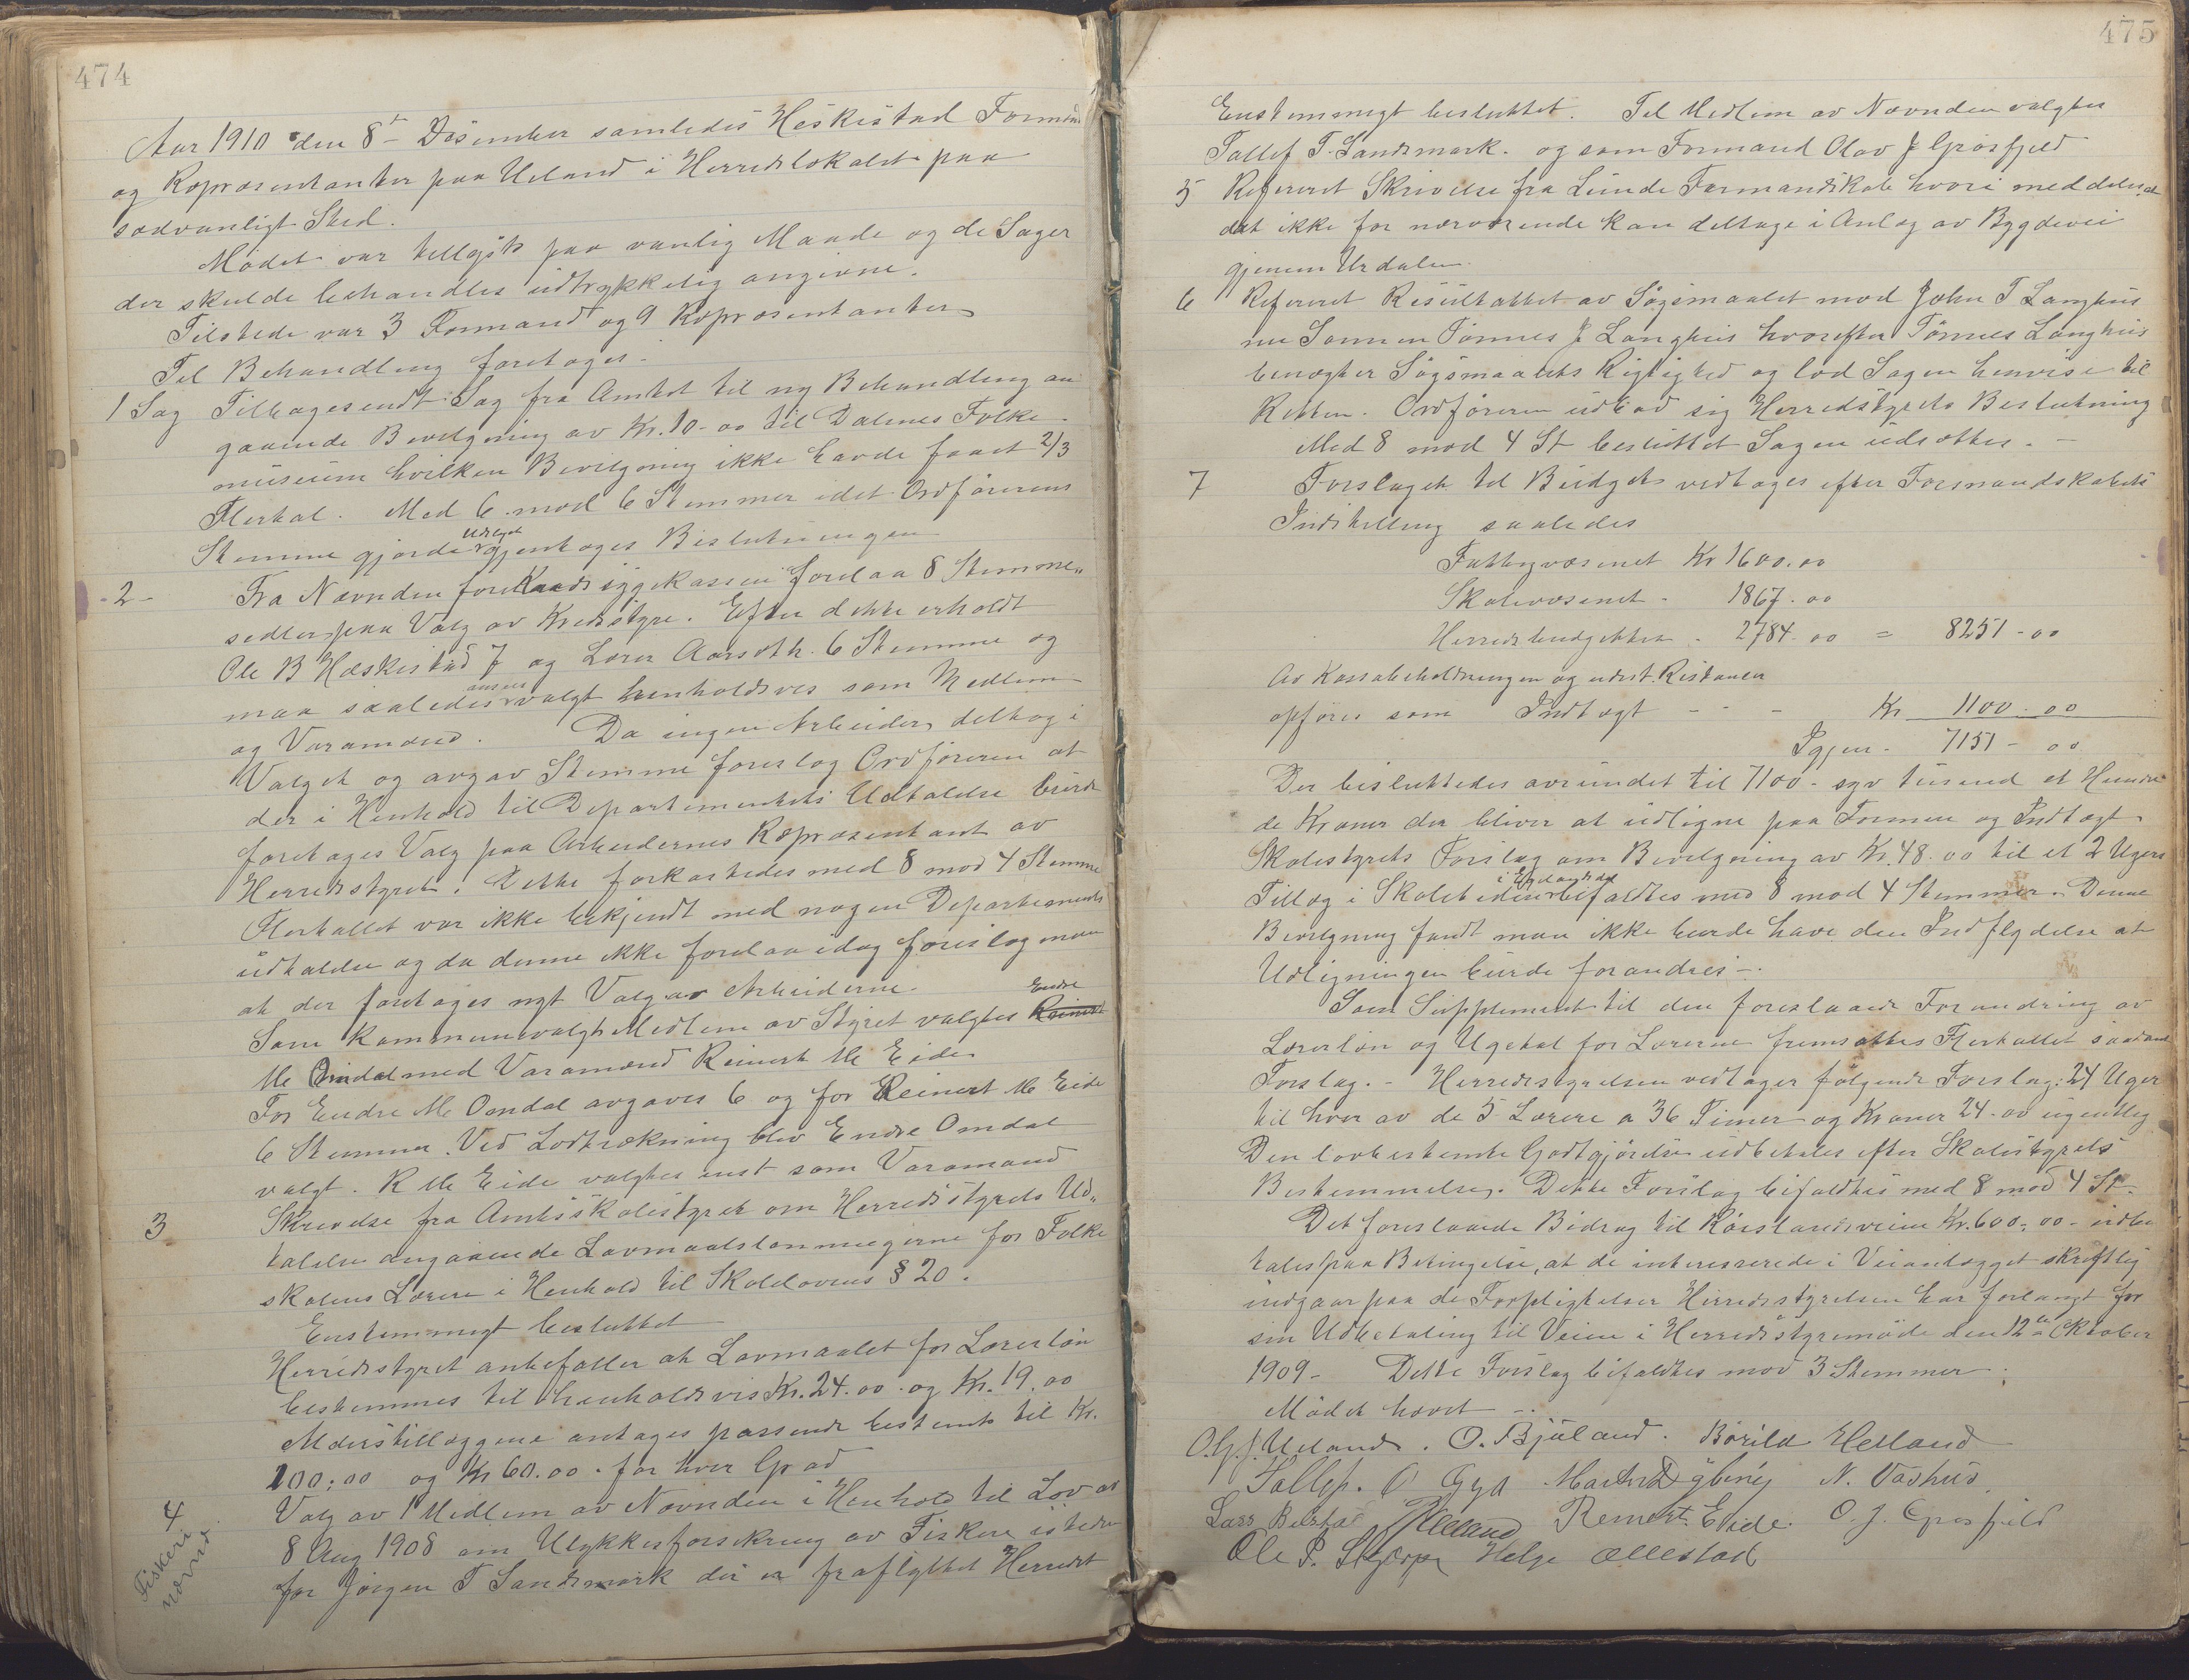 474
Aar 1910 den 8de Desember samledes Heskestad Formænd
og Repræsentanter paa Ueland i Herredslokalet paa
sædvanligt Sted.
Mødet var tillyst paa vanlig Maade og de Sager
der skulde behandles udtrykkelig angivne.
Tilstede var 3 Formænd og 9 Repræsentanter
Til Behandling foretoges:
1 Sag Tilbagesendt Sag fra Amtet til ny Behandling an
gaaende Bevilgning av Kr. 10-00 til Dalenes Folke-
museum hvilken Bevilgning ikke havde faaet 2/3
Flertal. Med 6 mod 6 Stemmer idet Ordførerens
Stemme gjorde Udslaget gjentoges Beslutningen
-2- Fra Nævnden for Kredssygekassen forelaa 8 Stemme„
sedler paa Valg av Kredsstyre. Efter dette erholdt
Ole B Heskestad 7 og Lærer Aarseth 6 Stemme og
maa saaledes ansees valgt henholdsvis som Medlem
og Varamænd. Da ingen Arbeider deltog i
Valget og avgav Stemme foreslog Ordføreren at
der i Henhold til Departementets Udtalelse burde
foretages Valg paa Arbeidernes Repræsentant av
Herredsstyret. Dette forkastedes med 8 mod 4 Stemme
Flertallet var ikke bekjendt med nogen Departements
udtalelse og da denne ikke forelaa idag foreslog man
at der foretages nyt Valg av Arbeiderne.
Som kommunevalgt Medlem av Styret valgtes Reinert Endre
M Omdal med Varamænd Reinert M Eide
For Endre M Omdal avgaves 6 og for Reinert M Eide
6 Stemmer. Ved Lodtrækning blev Endre Omdal
valgt. R M Eide valgtes enst som Varamand
3 Skrivelse fra Amtsskolestyret om Herredsstyrets Ud„
talelse angaaende Lavmaalslønningerne for Folke
skolens Lærere i Henhold til Skolelovens § 20.
Enstemmigt besluttet
Herredsstyret anbefaller at Lavmaalet for Lærerløn
bestemmes til henholdsvis Kr. 24.00 og Kr. 19.00
Alderstillæggene antages passende bestemt til Kr.
100:00 og Kr 60.00 for hver Grad
4 Valg av 1 Medlem av Nævnden i Henhold til Lov av
Fiskeri
nævnd
8 Aug 1908 om Ulykkesforsikring av Fiskere istedn
for Jørgen T Sandsmark der er fraflyttet Herredet
475
Enstemmigt besluttet. Til Medlem av Nævnden valgtes
Tollef T. Sandsmark. og som Formand Olav J Grøsfjeld
5 Refereret Skrivelse fra Lunde Formandskab hvori meddeles at
det ikke for nærværende kan deltage i Anlæg av Bygdevei
gjenem Urdalen.
6 Refereret Resultattet av Søgsmaalet mod John T Langhus
nu Sønnen Tønnes J Langhus hvorefter Tønnes Langhus
benægter Søgsmaalets Rigtighed og lod Sagen henvise til
Retten. Ordføreren udbad sig Herredstyrets Beslutning
Med 8 mod 4 St besluttet Sagen udsættes. -
7 Forslaget til Budget vedtoges efter Formandskabets
Indstilling saaledes
Fattigvæsenet Kr 1600.00
Skolevæsenet - 1867.00
Herredsbudgettet - 2784-00 = 8251-00
Av Kassabeholdningen og udest. Restancer
opføres som Indtægt - - - Kr 1100-00
Igjen - 7151-00
Der besluttedes avrundet til 7100- syv tusend et Hundre
de Kroner der bliver at udligne paa Formue og Indtægt
Skolestyrets Forslag om Bevilgning av Kr. 48.00 til et 2 Ugers
Tillæg i Skoletiden i Egelandsdal bifaldtes med 8 mod 4 Stemmer. Denne
Bevilgning fandt man ikke burde have den Indflydelse at
Udligningen burde forandres-.
Som Supplement til den foreslaaede Forandring av
Lærerløn og Ugetal for Lærerne fremsattes Flertallet saadant
Forslag. - Herredsstyrelsen vedtager følgende Forslag: 24 Uger
til hver av de 5 Lærere a 36 Timer og Kroner 24-00 ugentlig
Den lovbestemte Godtgjørelse udbetales efter Skolestyrets
Bestemmelse. Dette Forslag bifaldtes med 8 mod 4 St.
Det foreslaaede Bidrag til Rørslandsveien Kr. 600,00- udbe
tales paa Betingelse, at de interesserede i Veianlægget skriftlig
indgaar paa de Forpligtelser Herredsstyrelsen har forlangt for
sin Udbetaling til Veien i Herredsstyremøde den 12te Oktober
1909- Dette Forslag bifaldtes mod 3 Stemmer
Mødet hævet -.
O. G. Ueland. O. Bjuland. Børild Helland
Tollef. O Gya Martin Dybing N. Vashus
Lars Reinert. Eide. O. J. Grøsfjeld
Ole P. Skjerpe Helge Ællestad